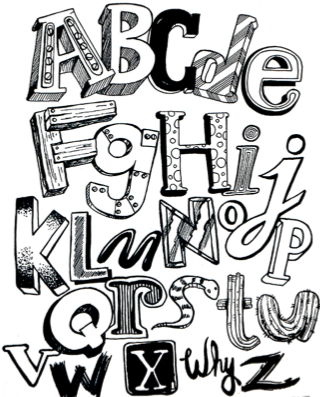 ABCde
FgHij
KLMNOP
QrStu
VWXWhyZ